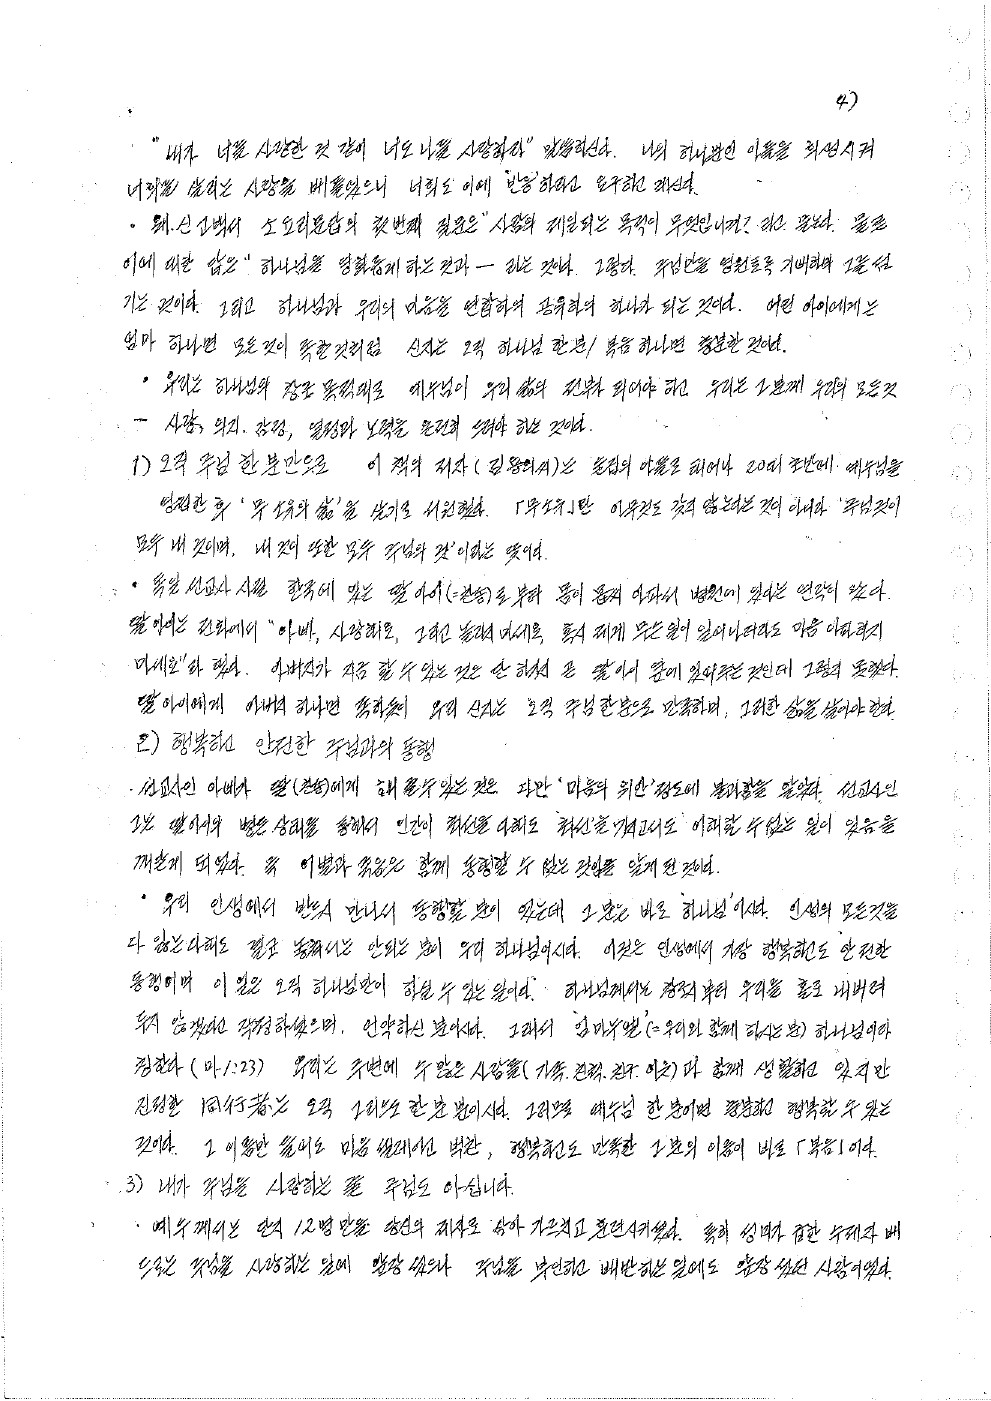 4)
"내가 너를 사랑한 것 같이 너도 나를 사랑하라" 말씀하신다. 나의 하나뿐인 아들을 희생시켜
너희를 살리는 사랑을 베풀었으니 너희도 이에 '반응'하라고 요구하고 계신다.
• 웨.신고백서 소요리문답의 첫번째 질문은 "사람의 제일되는 목적이 무엇입니까?" 라고 묻는다. 물론
이에 대한 답은 "하나님을 영화롭게 하는 것과 — 라는 것이다. 그렇다. 주님만을 영원토록 기뻐하며 그를 섬
기는 것이다. 그리고 하나님과 우리의 마음을 연합하여 공유하며 하나가 되는 것이다. 어린 아이에게는
엄마 하나면 모든것이 족한것처럼 신자는 오직 하나님 한 분/ 복음 하나면 충분한 것이다.
• 우리는 하나님의 창조 목적대로 예수님이 우리 삶의 전부가 되어야 하고 우리는 그분께 우리의 모든것
— 사랑, 의지, 감정, 열정과 노력을 온전히 드려야 하는 것이다.
1) 오직 주님 한 분만으로 이 책의 저자(김왕의 )는 불집의 아들로 태어나 20대 초반에 예수님을
영접한 후 '무소유의 삶'을 살기로 서원했다. 「무소유」란 아무것도 갖지 않는다는 것이 아니라 '주님것이
모두 내 것이며, 내 것이 또한 모두 주님의 것'이라는 뜻이다.
• 독일 선교사 시절 한국에 있는 딸 아이(= )로부터 몸이 몹시 아파서 병원에 있다는 연락이 왔다.
딸 아이는 전화에서 "아빠, 사랑해요, 그리고 놀라지 마세요, 혹시 제게 무슨일이 일어나더라도 마음 아파하지
마세요"라 했다. 아버지가 지금 할 수 있는 것은 단 하나 곧 딸 아이 곁에 있어주는 것인데 그렇지 못했다.
딸 아이에게 아버지 하나면 족하듯이 우리 신자는 오직 주님 한 분으로 만족하며, 그러한 삶을 살아야 한다.
2) 행복하고 안전한 주님과의 동행
• 선교사인 아빠가 딸( )에게 해 줄 수 있는 것은 다만 '마음의 위안' 정도에 불과함을 알았다. 선교사인
그는 딸 아이의 병든 상태를 통해서 인간이 최선을 다해도 '최선'을 가지고서도 이해할 수 없는 일이 있음을
깨닫게 되었다. 즉 이별과 죽음은 함께 동행할 수 없는 것임을 알게 된 것이다.
• 우리 인생에서 반드시 만나서 동행할 분이 있는데 그 분은 바로 '하나님'이시다. 인생의 모든것을
다 잃는다해도 결코 놓쳐서는 안되는 분이 우리 하나님이시다. 이것은 인생에서 가장 행복하고도 안전한
동행이며 이 일은 오직 하나님만이 하실 수 있는 일이다. 하나님께서는 창조부터 우리를 홀로 내버려
두지 않겠다고 작정하셨으며, 언약하신 분이시다. 그래서 '임마누엘'(=우리와 함께 하시는 분) 하나님이라
칭한다 (마1:23) 우리는 주변에 수많은 사람들(가족.친척.친구.이웃)과 함께 생활하고 있지만
진정한 同行者는 오직 그리스도 한 분 뿐이시다. 그러므로 예수님 한 분이면 충분하고 행복할 수 있는
것이다. 그 이름만 들어도 마음 설레이고 벅찬, 행복하고도 만족한 그 분의 이름이 바로 「복음」이다.
3) 내가 주님을 사랑하는 줄 주님도 아십니다.
• 예수께서는 단지 12명만을 당신의 제자로 삼아 가르치고 훈련시키셨다. 특히 성미가 급한 수제자 베
드로는 주님을 사랑하는 일에 앞장 섰으나 주님을 부인하고 배반하는 일에도 앞장 섰던 사람이었다.